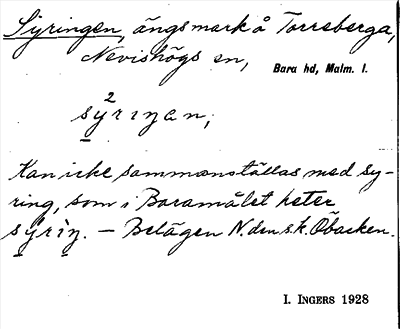 Syringen, ängsmark å Torreberga,
Nevishögs sn,
Bara hd, Malm. l.
2
sýrıŋan;
Kan icke sammanställas med sy-
ring, som i Baramålet heter
sýrìŋ. – Belägen N. den s.k. Öbacken.
I. INGERS 1928